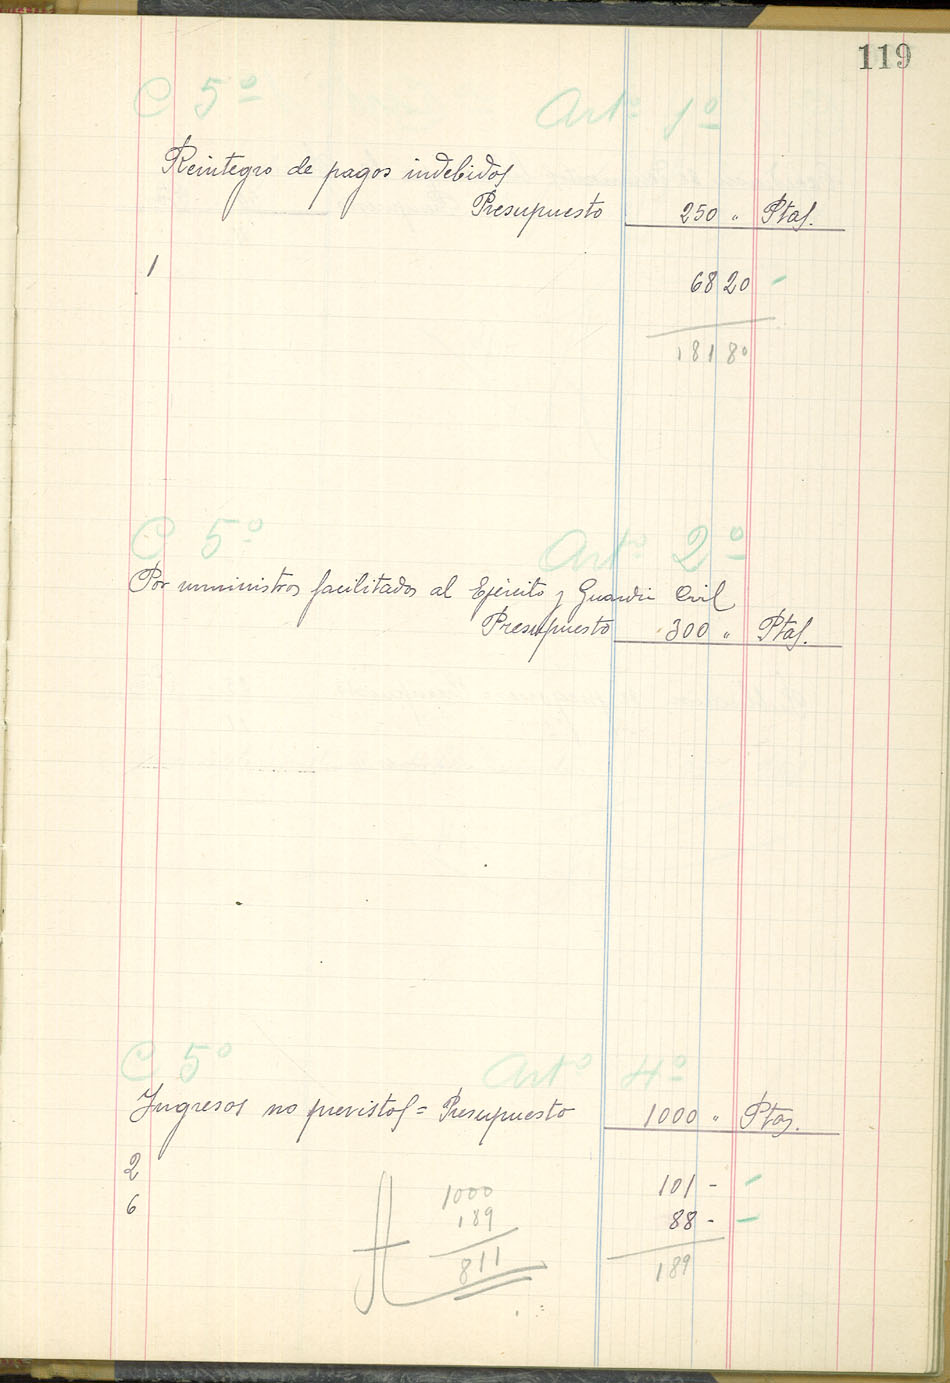 119
C 5º Artº 1º
Reintegro de pagos indebidos
Presupuesto 250 " Ptas.
1 68 20 -
181 80
C 5º Artº 2º
Por suministros facilitados al Ejército y Guardia Civil
Presupuesto 300 " Ptas.
C 5º Artº 4º
Ingresos no previstos = Presupuesto 1000 " Ptas.
2 101 - -
6 88 - -
1000
189
811
189